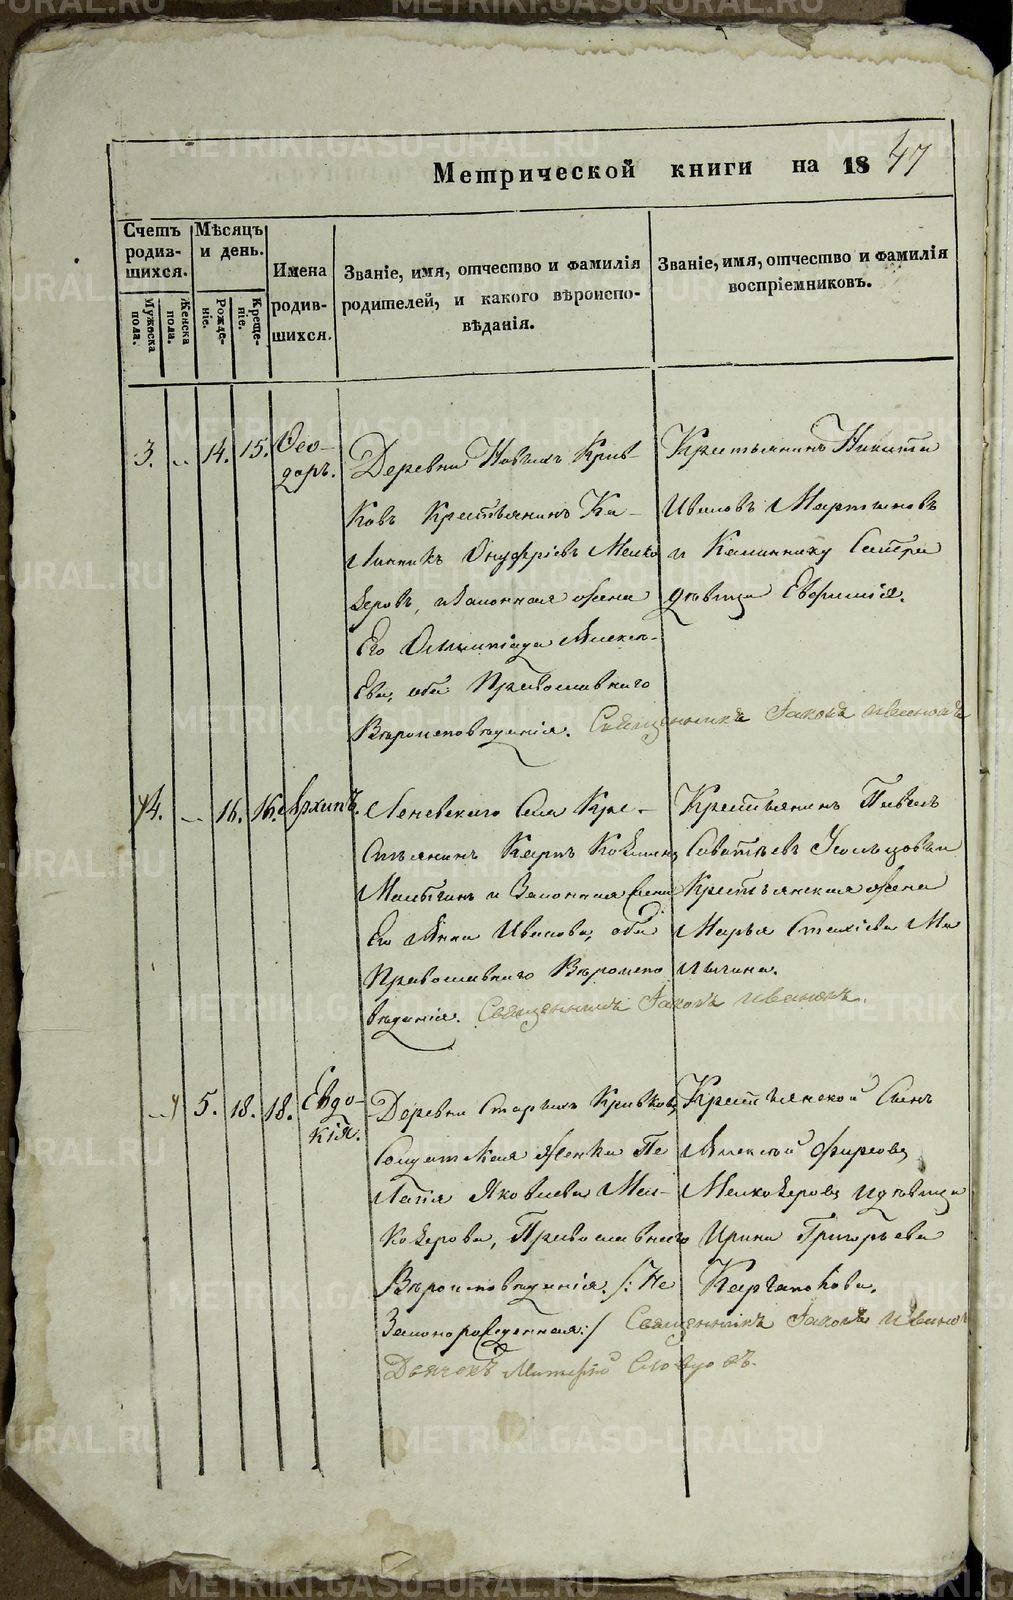 METRIKI.GASO-URAL.RU
Метрической книги на 1847
Счетъ родив-шихся.
Мѣсяцъ и день.
Имена родив-шихся.
Званіе, имя, отчество и фамилія родителей, и какого вѣроиспо-вѣданія.
Званіе, имя, отчество и фамилія воспріемниковъ.
Мужеска пола.
Женска пола.
Рожде-ніе.
Креще-ніе.
3. .. 14. 15. Ѳео-
доръ.
Деревни Новыхъ Крив-
ковъ Крестьянинъ Ка-
линникъ Онуфріевъ Мелко
зеровъ, и Законная жена
Его Олимпіада Алексѣ-
ева, оба Православнаго
Вѣроисповѣданія. Священникъ Іаковъ Ивановъ
Крестьянинъ Никита
Ивановъ Мартьяновъ
и Калиннику Сестра
дѣвица Евфимія.
4. .. 16. 16. Архипъ.
Леневскаго Села Кре-
стьянинъ Карпъ Козминъ
Малыгинъ и Законная Жена
Его Анна Иванова, оба
Православнаго Вѣроиспо
вѣданія. Священникъ Іаковъ Ивановъ.
Крестьянинъ Павелъ
Саватѣевъ Усольцовъ и
Крестьянская жена
Марья Стахіева Ма
лыгина.
.. 5. 18. 18. Евдо-
кія.
Деревни Старыхъ Кривковъ
Солдатская Женка Пе
лагія Яковлева Мел-
козерова, Православнаго
Вѣроисповѣданія. /: Не
Законорожденная:/ Священникъ Іаковъ Иванов
Дьячекъ
Крестьянской Сынъ
Алексѣй Фирсовъ
Мелкозеровъ и дѣвица
Ирина Григорьева
Карчапокова.